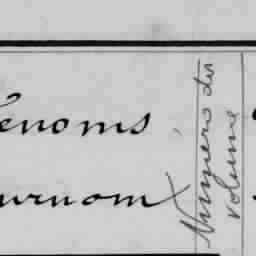 enoms
urnom
Numero du
volume